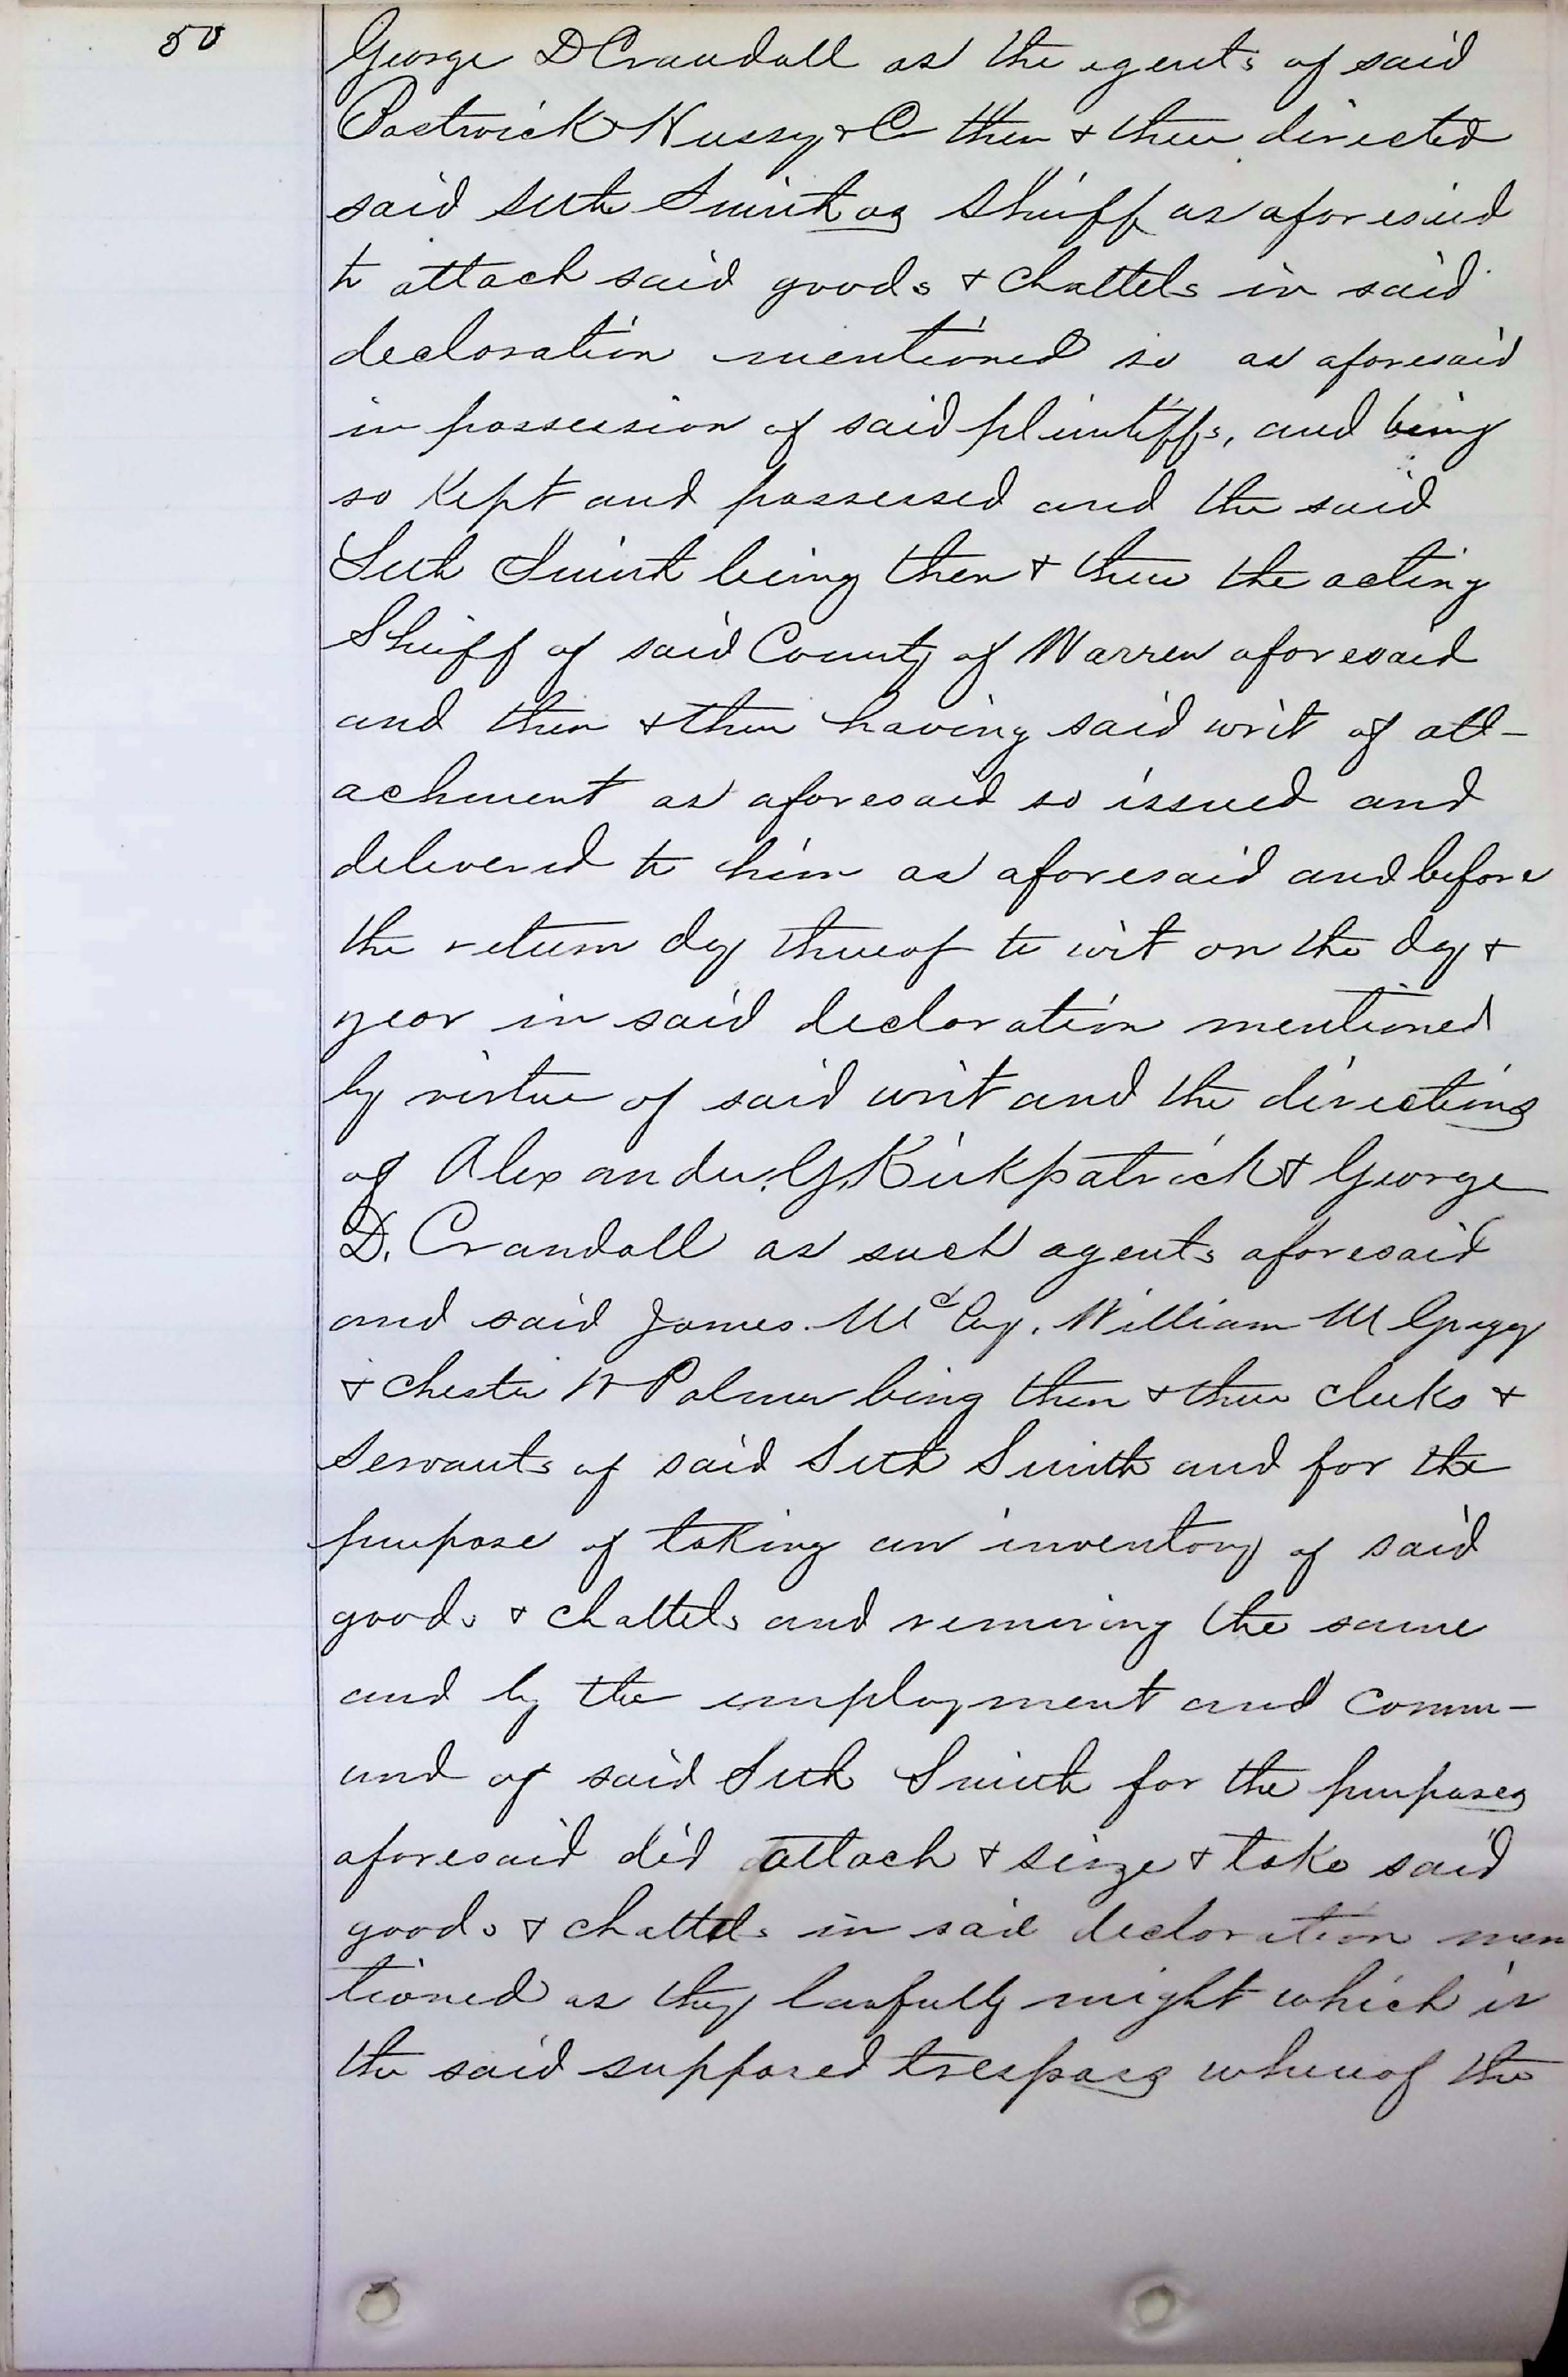 50
George D Crandall as the agents of said
Bostwick Hussy & Co then & there directed
said Seth Smith as Sheriff as aforesaid
to attach said goods & chattels in said
declaration mentioned so as aforesaid
in possession of said plaintiffs, and being
so kept and possessed and the said
Seth Smith being then & there the acting
Sheriff of said County of Warren aforesaid
and then & there having said writ of att-
achment as aforesaid so issued and
delivered to him as aforesaid and before
the return day thereof to wit on the day &
year in said declaration mentioned
by virtue of said writ and the directions
of Alexander. G. Kirkpatrick & George
D. Crandall as such agents aforesaid
and said James. McCoy. William M Gregg
& Chester W Palmer being then & there clerks &
Servants of said Seth Smith and for the
purpose of taking an inventory of said
goods & chattels and removing the same
and by the employment and comm-
and of said Seth Smith for the purposes
aforesaid did attach & sieze & take said
goods & chattels in said declaration men
tioned as they lawfully might which is
the said supposed trespass whereof the